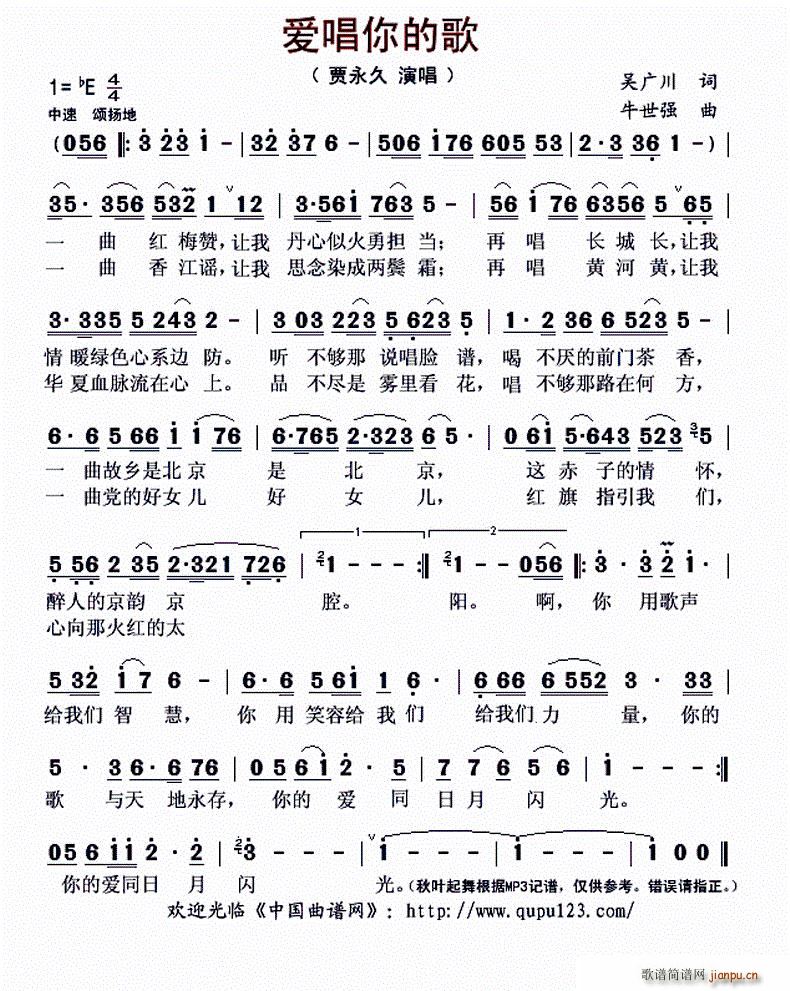 爱唱你的歌
（ 贾永久 演唱 ）
1= ♭E 4/4
吴广川 词
中速 颂扬地
牛世强 曲
(056 ‖: 3 23 1 - | 32 376 - | 506 176 605 53 | 2·3 36 1 - ) |
35· 356 532 1 12 | 3·561 763 5 - | 56 1 76 6356 5 65 |
一 曲 红 梅赞，让我 丹心似火勇担 当； 再 唱 长 城长，让我
一 曲 香 江谣，让我 思念染成两鬓 霜； 再 唱 黄 河黄，让我
3·335 5 243 2 - | 3 03 223 5 623 5 | 1·2 36 6 523 5 - |
情 暖绿色心系边 防。 听 不够那 说唱脸 谱，喝 不厌的前门茶 香，
华 夏血脉流在心 上。 品 不尽是 雾里看 花，唱 不够那路在何 方，
6·6 5 66 1 1 76 | 6·765 2·323 6 5· | 0 61 5·643 523 35 |
一 曲故乡是北 京 是 北 京， 这 赤 子的情 怀，
一 曲党的好女 儿 好 女 儿， 红 旗 指引我 们，
1 2
5 56 2 35 2·321 726 | 21 - - - :‖ 21 - - 056 ‖: 3·3 2 1· |
醉人的京韵 京 腔。 阳。 啊， 你 用歌声
心向那火红的太
5 32 1 7 6 - | 6·6 5 61 6 - | 6 66 6 552 3·33 |
给我们 智 慧， 你 用 笑容给 我 们 给我们 力 量，你的
5·36·6 76 | 0 5 61 2·5 | 7 7 6 56 | 1 - - - :‖
歌 与天 地永存， 你的 爱 同 日 月 闪 光。
05 6 11 2·2 | 23 - - - | 1 - - - | 1 - - - | 1 0 0 ‖
你的爱同日 月 闪 光。（秋叶起舞根据MP3记谱，仅供参考。错误请指正。）
欢迎光临《中国曲谱网》：http://www.qupu123.com/
歌谱简谱网 jianpu.cn